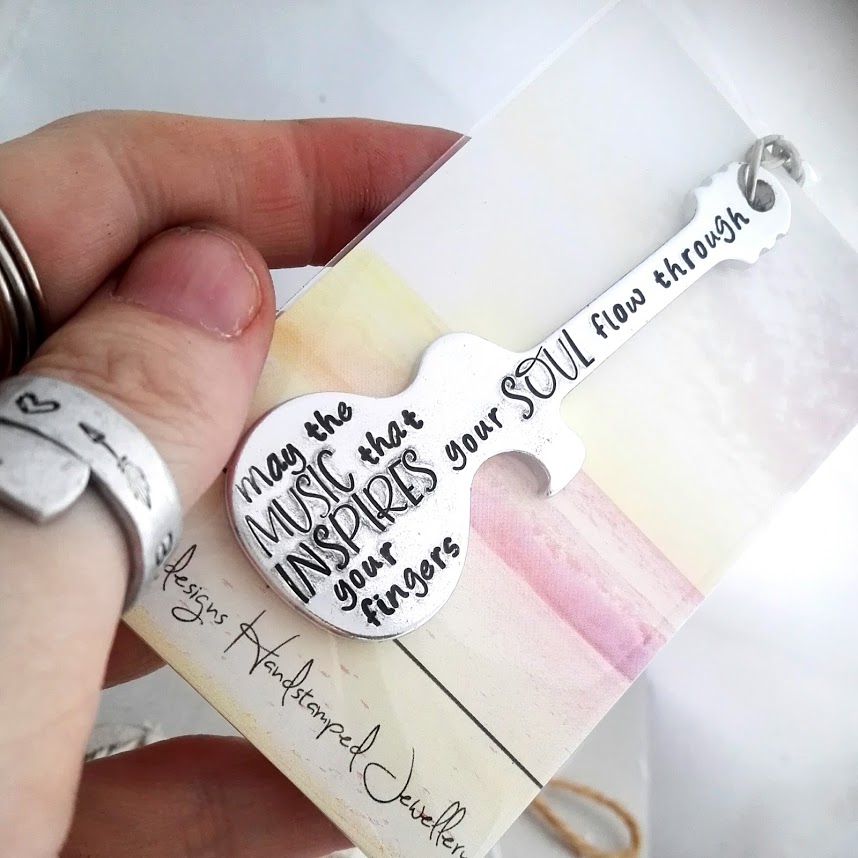 may the
MUSIC that
INSPIRES your SOUL flow through
your
fingers
designs Handstamped Jewellery